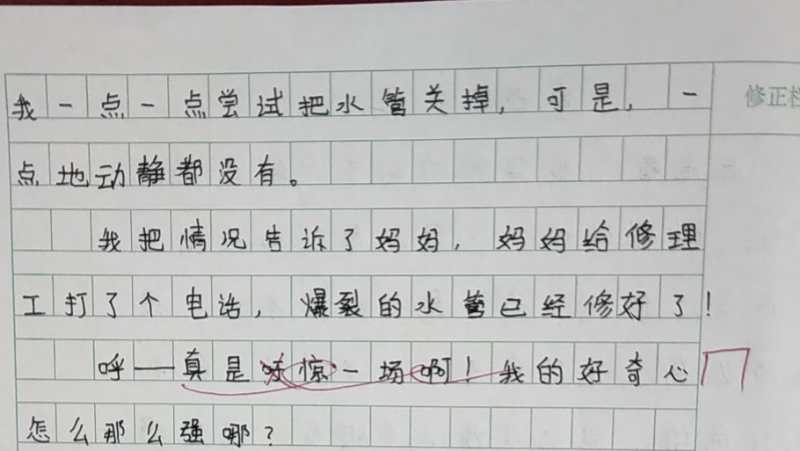 我一点一点尝试把水管关掉，可是，一
修正栏
点地动静都没有。
我把情况告诉了妈妈，妈妈给修理
工打了个电话，爆裂的水管已经修好了！
呼——真是惊一场啊！我的好奇心
怎么那么强哪？